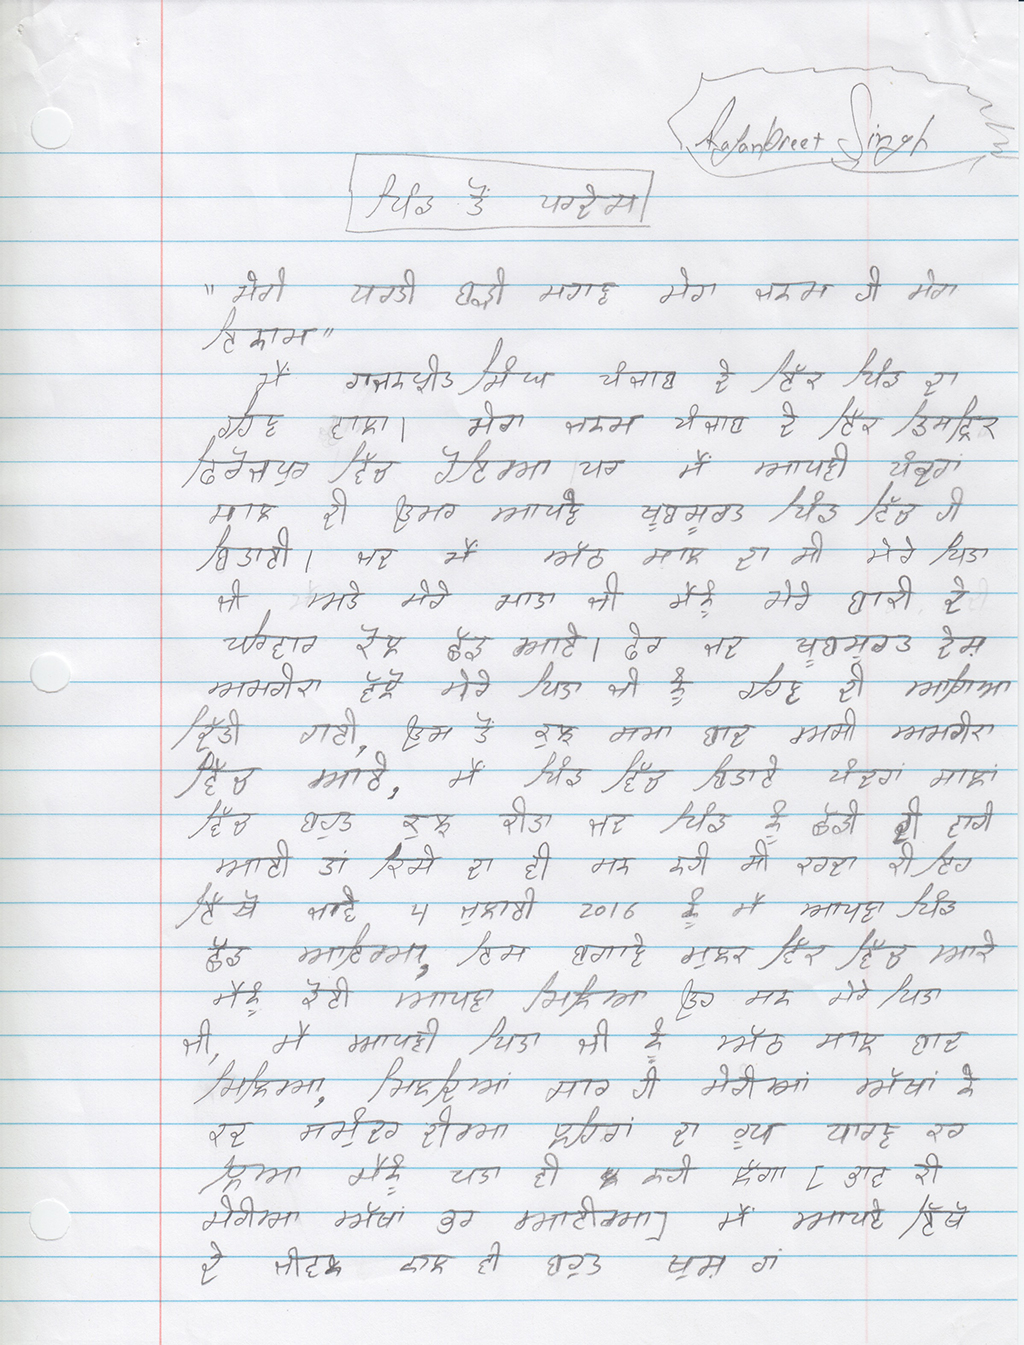 Rajanpreet Singh
ਪਿੰਡ ਤੋਂ ਪਰਦੇਸ
"ਮੇਰੀ ਧਰਤੀ ਬੜੀ ਮਹਾਣ ਮੇਰਾ ਜਨਮ ਹੀ ਮੇਰਾ
ਇਨਾਮ"
ਮੈਂ ਰਾਜਨਪ੍ਰੀਤ ਸਿੰਘ ਪੰਜਾਬ ਦੇ ਇੱਕ ਪਿੰਡ ਦਾ
ਰਹਿਣ ਵਾਲਾ। ਮੇਰਾ ਜਨਮ ਪੰਜਾਬ ਦੇ ਇੱਕ
ਫਿਰੋਜਪੁਰ ਵਿੱਚ ਹੋਇਆ ਪਰ ਮੈਂ ਆਪਣੀ ਪੰਦ੍ਰਾਂ
ਸਾਲ ਦੀ ਉਮਰ ਆਪਣੇ ਖੂਬਸੂਰਤ ਪਿੰਡ ਵਿੱਚ ਹੀ
ਬਿਤਾਈ। ਜਦ ਮੈਂ ਅੱਠ ਸਾਲ ਦਾ ਸੀ ਮੇਰੇ ਪਿਤਾ
ਜੀ ਅਤੇ ਮੇਰੇ ਮਾਤਾ ਜੀ ਮੈਨੂੰ ਮੇਰੇ ਬਾਕੀ ਦੇ
ਪਰਿਵਾਰ ਕੋਲ ਛੱਡ ਆਏ। ਫੇਰ ਜਦ ਖੂਬਸੂਰਤ ਦੇਸ਼
ਅਮਰੀਕਾ ਵੱਲੋਂ ਮੇਰੇ ਪਿਤਾ ਜੀ ਨੂੰ ਰਹਿਣ ਦੀ ਆਗਿਆ
ਦਿੱਤੀ ਗਈ, ਉਸ ਤੋਂ ਕੁਝ ਸਮਾ ਬਾਦ ਅਸੀ ਅਮਰੀਕਾ
ਵਿੱਚ ਆਏ, ਮੈਂ ਪਿੰਡ ਵਿੱਚ ਬਿਤਾਏ ਪੰਦਰਾਂ ਸਾਲਾਂ
ਵਿੱਚ ਬਹੁਤ ਕੁਝ ਕੀਤਾ ਜਦ ਪਿੰਡ ਨੂੰ ਛੱਡੀ ਦੀ ਵਾਰੀ
ਆਈ ਤਾਂ ਕਿਸੇ ਦਾ ਵੀ ਮਨ ਨਹੀ ਸੀ ਕਰਦਾ ਕੀ ਇਹ
ਇੱਥੋ ਜਾਵੇ 4 ਜੁਲਾਈ 2016 ਨੂੰ ਮੈਂ ਆਪਣਾ ਪਿੰਡ
ਛੱਡ ਆਇਆ, ਇਸ ਬਗਾਣੇ ਮੁਲਕ ਇੱਕ ਵਿੱਚ ਆਕੇ
ਮੈਨੂੰ ਕੋਈ ਆਪਣਾ ਮਿਲਿਆ ਉਹ ਸਨ ਮੇਰੇ ਪਿਤਾ
ਜੀ, ਮੈਂ ਆਪਣੀ ਪਿਤਾ ਜੀ ਨੂੰ ਅੱਠ ਸਾਲ ਬਾਦ
ਮਿਲਿਆ, ਮਿਲਦਿਆਂ ਸਾਰ ਹੀ ਮੇਰੀਆਂ ਅੱਖਾਂ ਨੇ
ਕਦ ਸਮੁੰਦਰ ਦੀਆ ਲਹਿਰਾਂ ਦਾ ਰੂਪ ਧਾਰਣ ਕਰ
ਲਿਆ ਮੈਨੂੰ ਪਤਾ ਵੀ ਨਹੀ ਲੱਗਾ [ ਭਾਵ ਕੀ
ਮੇਰੀਆ ਅੱਖਾਂ ਭਰ ਆਈਆ] ਮੈਂ ਆਪਣੇ ਇੱਥੋ
ਦੇ ਜੀਵਨ ਨਾਲ ਵੀ ਬਹੁਤ ਖੁਸ਼ ਹਾਂ